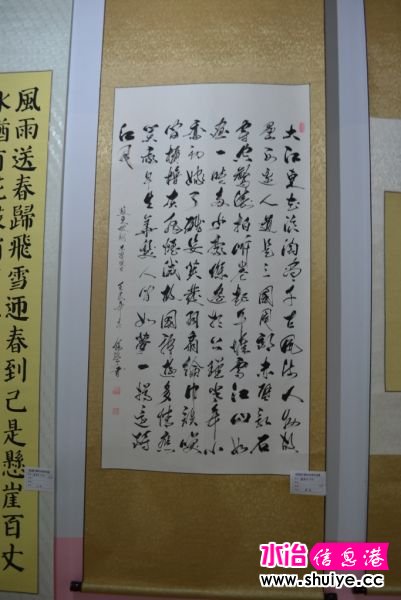 大江东去浪淘尽千古風流人物故
垒西边人道是三國周郎赤壁亂石
穿空驚濤拍岸卷起千堆雪江山如
画一時多少豪傑遥想公瑾當年小
喬初嫁了雄姿英發羽扇綸巾談笑
間樯橹灰飛煙滅故國神遊多情應
笑我早生華髮人间如夢一樽還酹
江月
風雨送春歸飛雪迎春到已是懸崖百丈
冰猶有花枝
水冶信息港
www.shuiye.cc